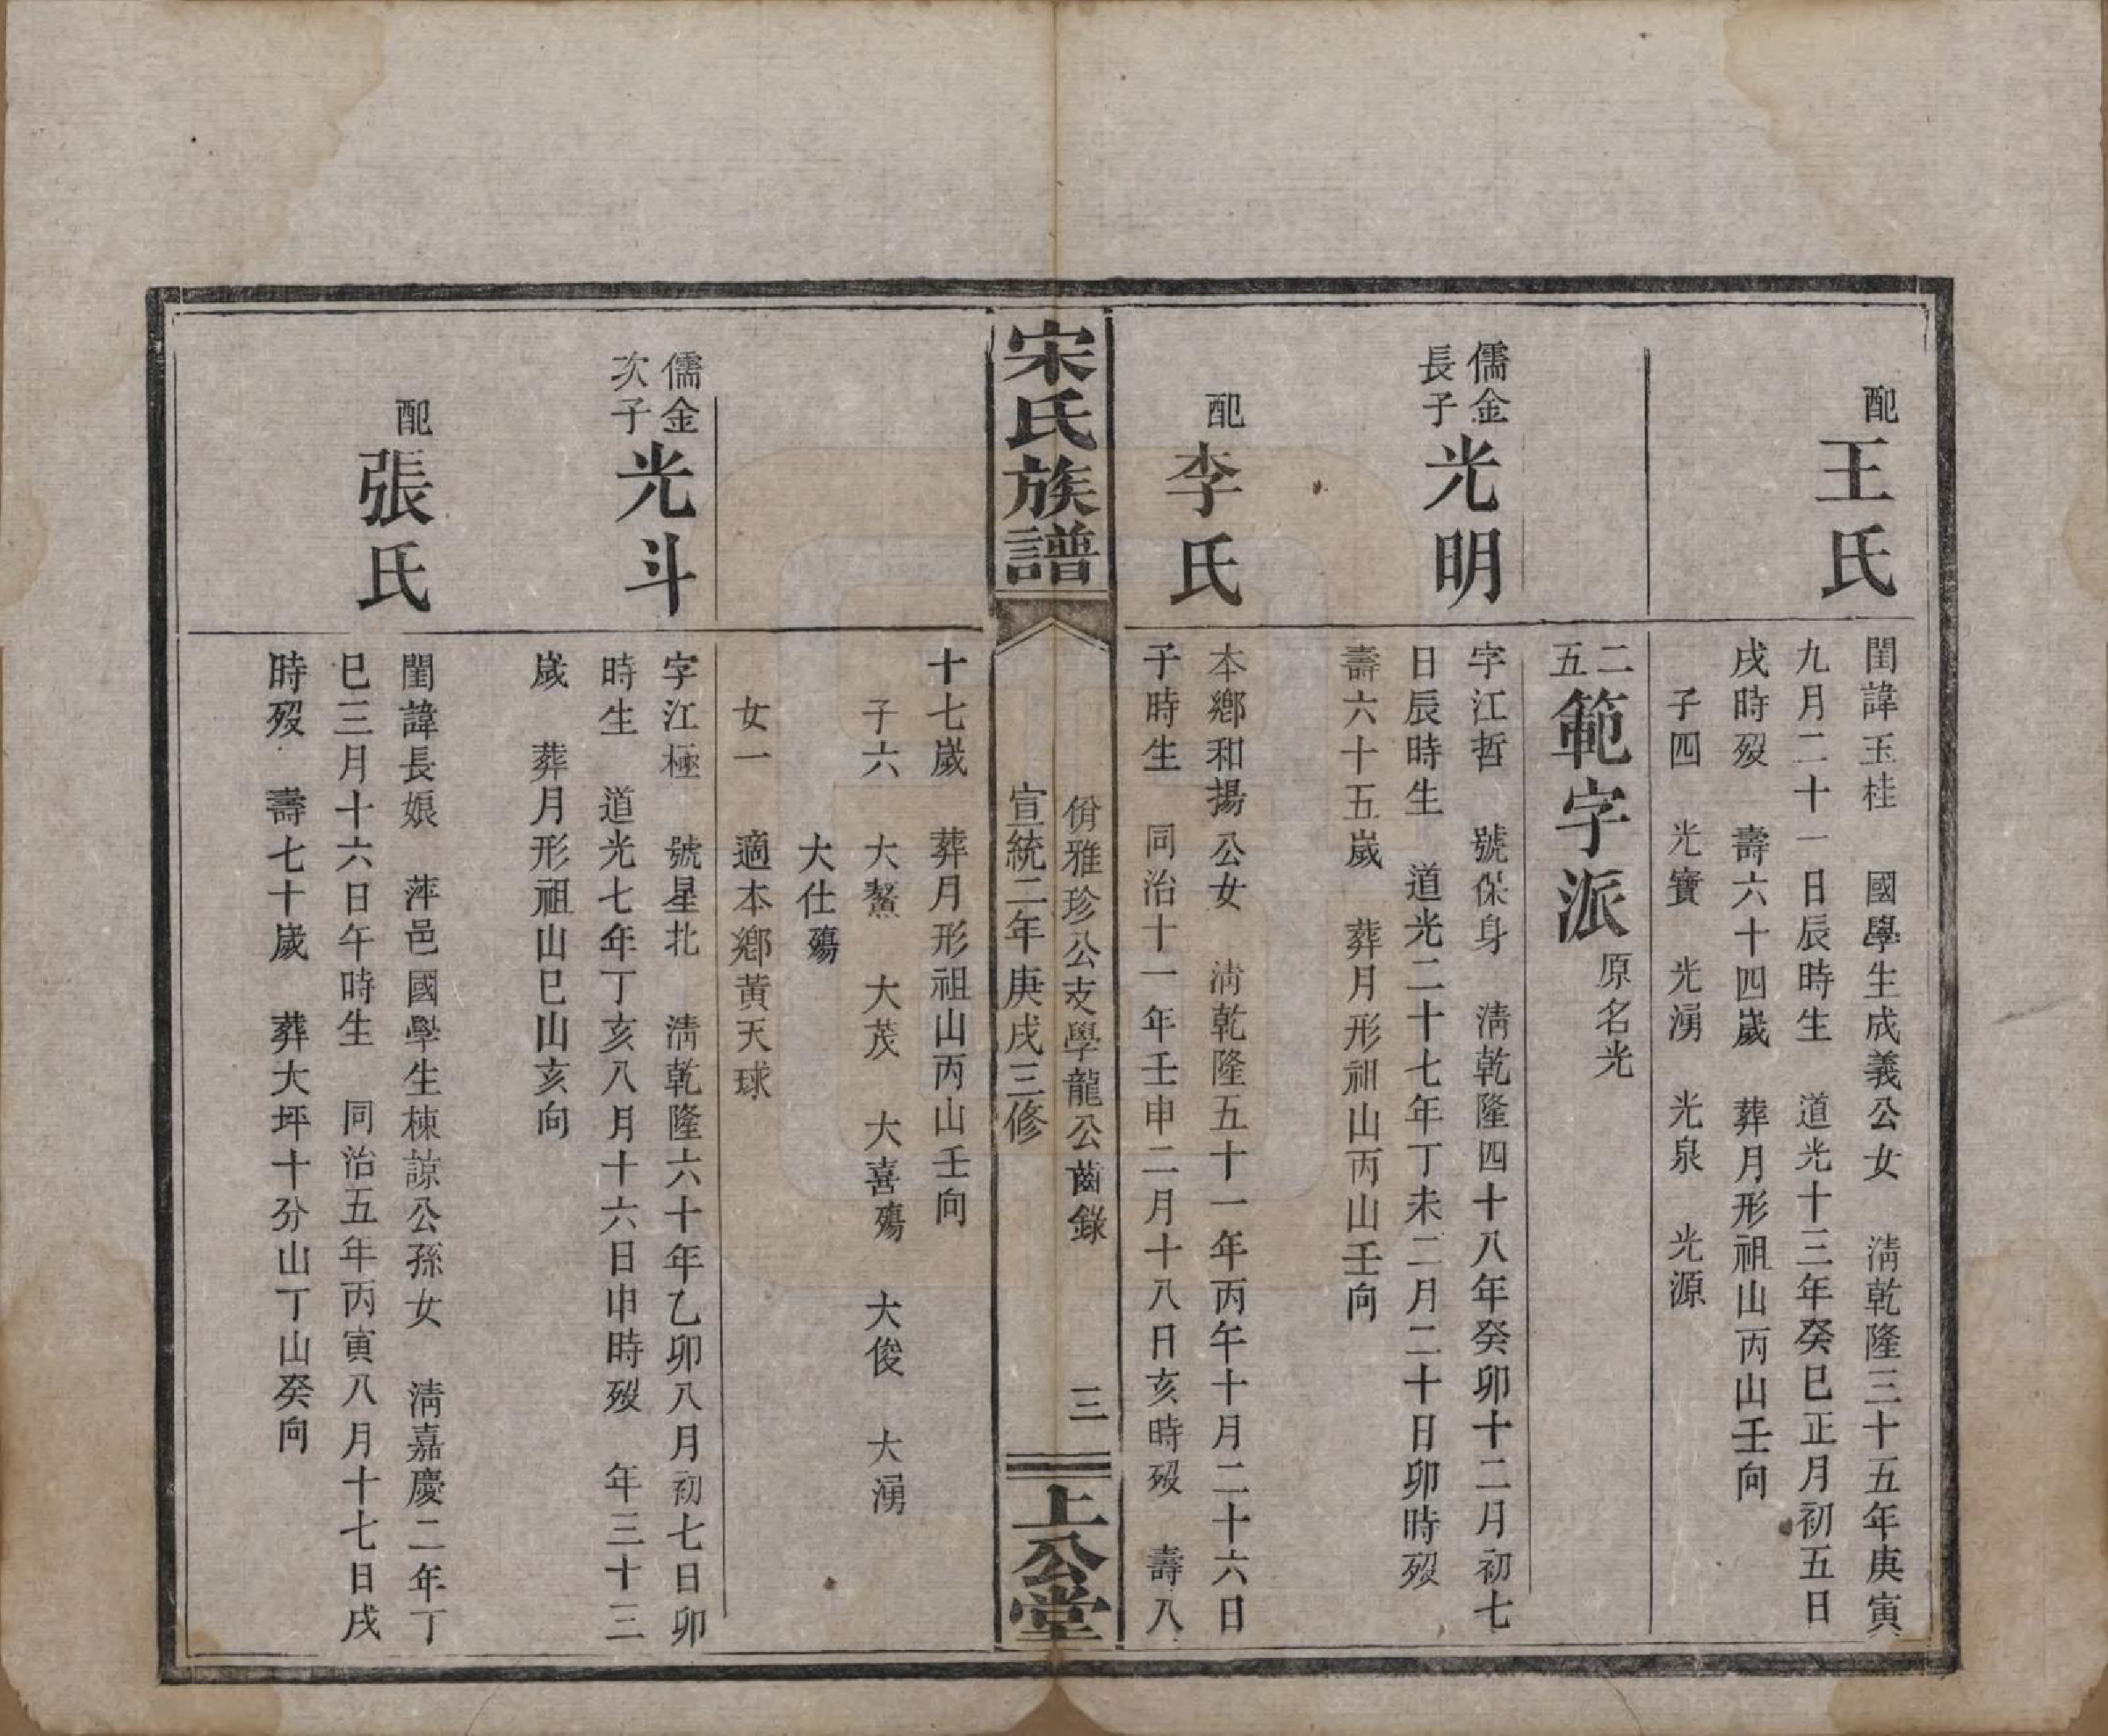 配王氏
閨諱玉桂　國學生成義公女　淸乾隆三十五年庚寅
九月二十一日辰時生　道光十三年癸巳正月初五日
戌時歿　壽六十四歲　葬月形祖山丙山壬向
子四　光寶　光湧　光泉　光源
二五範字派原名光
儒金
長子
光明
字江哲　號保身　淸乾隆四十八年癸卯十二月初七
日辰時生　道光二十七年丁未二月二十日卯時歿
壽六十五歲　葬月形祖山丙山壬向
配李氏
本鄉和揚公女　淸乾隆五十一年丙午十月二十六日
子時生　同治十一年壬申二月十八日亥時歿　壽八
宋氏族譜
佾雅珍公支學龍公齒錄　三
宣統二年庚戌三修
上公堂
十七歲　葬月形祖山丙山壬向
子六　大鰲　大茂　大喜殤　大俊　大湧
大仕殤
女一　適本鄉黃天球
儒金
次子
光斗
字江極　號星北　淸乾隆六十年乙卯八月初七日卯
時生　道光七年丁亥八月十六日申時歿　年三十三
歲　葬月形祖山巳山亥向
配張氏
閨諱長娘　萍邑國學生棟諒公孫女　淸嘉慶二年丁
巳三月十六日午時生　同治五年丙寅八月十七日戌
時歿　壽七十歲　葬大坪十分山丁山癸向